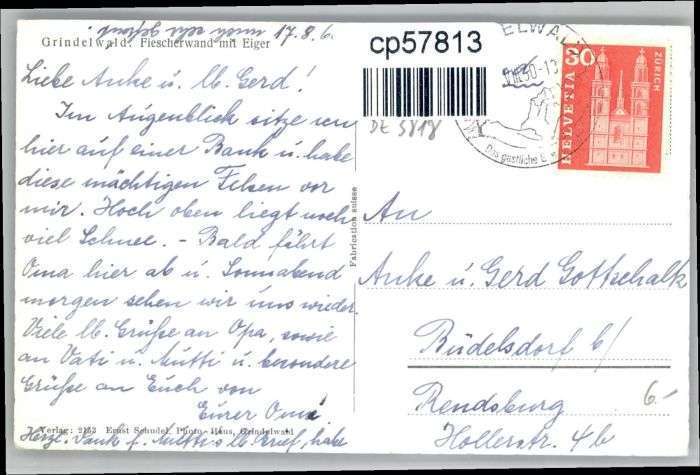 17.8.6.
Grindelwald. Fiescherwand mit Eiger
Liebe Anke u. lb. Gerd!
Im Augenblick sitze ich
hier auf einer Bank u. habe
diese mächtigen Felsen vor
mir. Hoch oben liegt noch
viel Schnee. – Bald fährt
Oma hier ab u. Sonnabend
morgen sehen wir uns wieder.
Viele lb. Grüße an Opa, sowie
an Vati u. Mutti u. besondere
Grüße an Euch von
Eurer Oma
Verlag: 2153 Ernst Schudel, Photo-Haus, Grindelwald
Herzl. Dank f. Mutti's lb. Brief, habe
Fabrication suisse
cp57813
DE 5818
Das gastliche
30
HELVETIA
ZÜRICH
An
Anke u. Gerd Gottschalk
Büdelsdorf b/
Rendsburg
Hollerstr. 4b
6.-